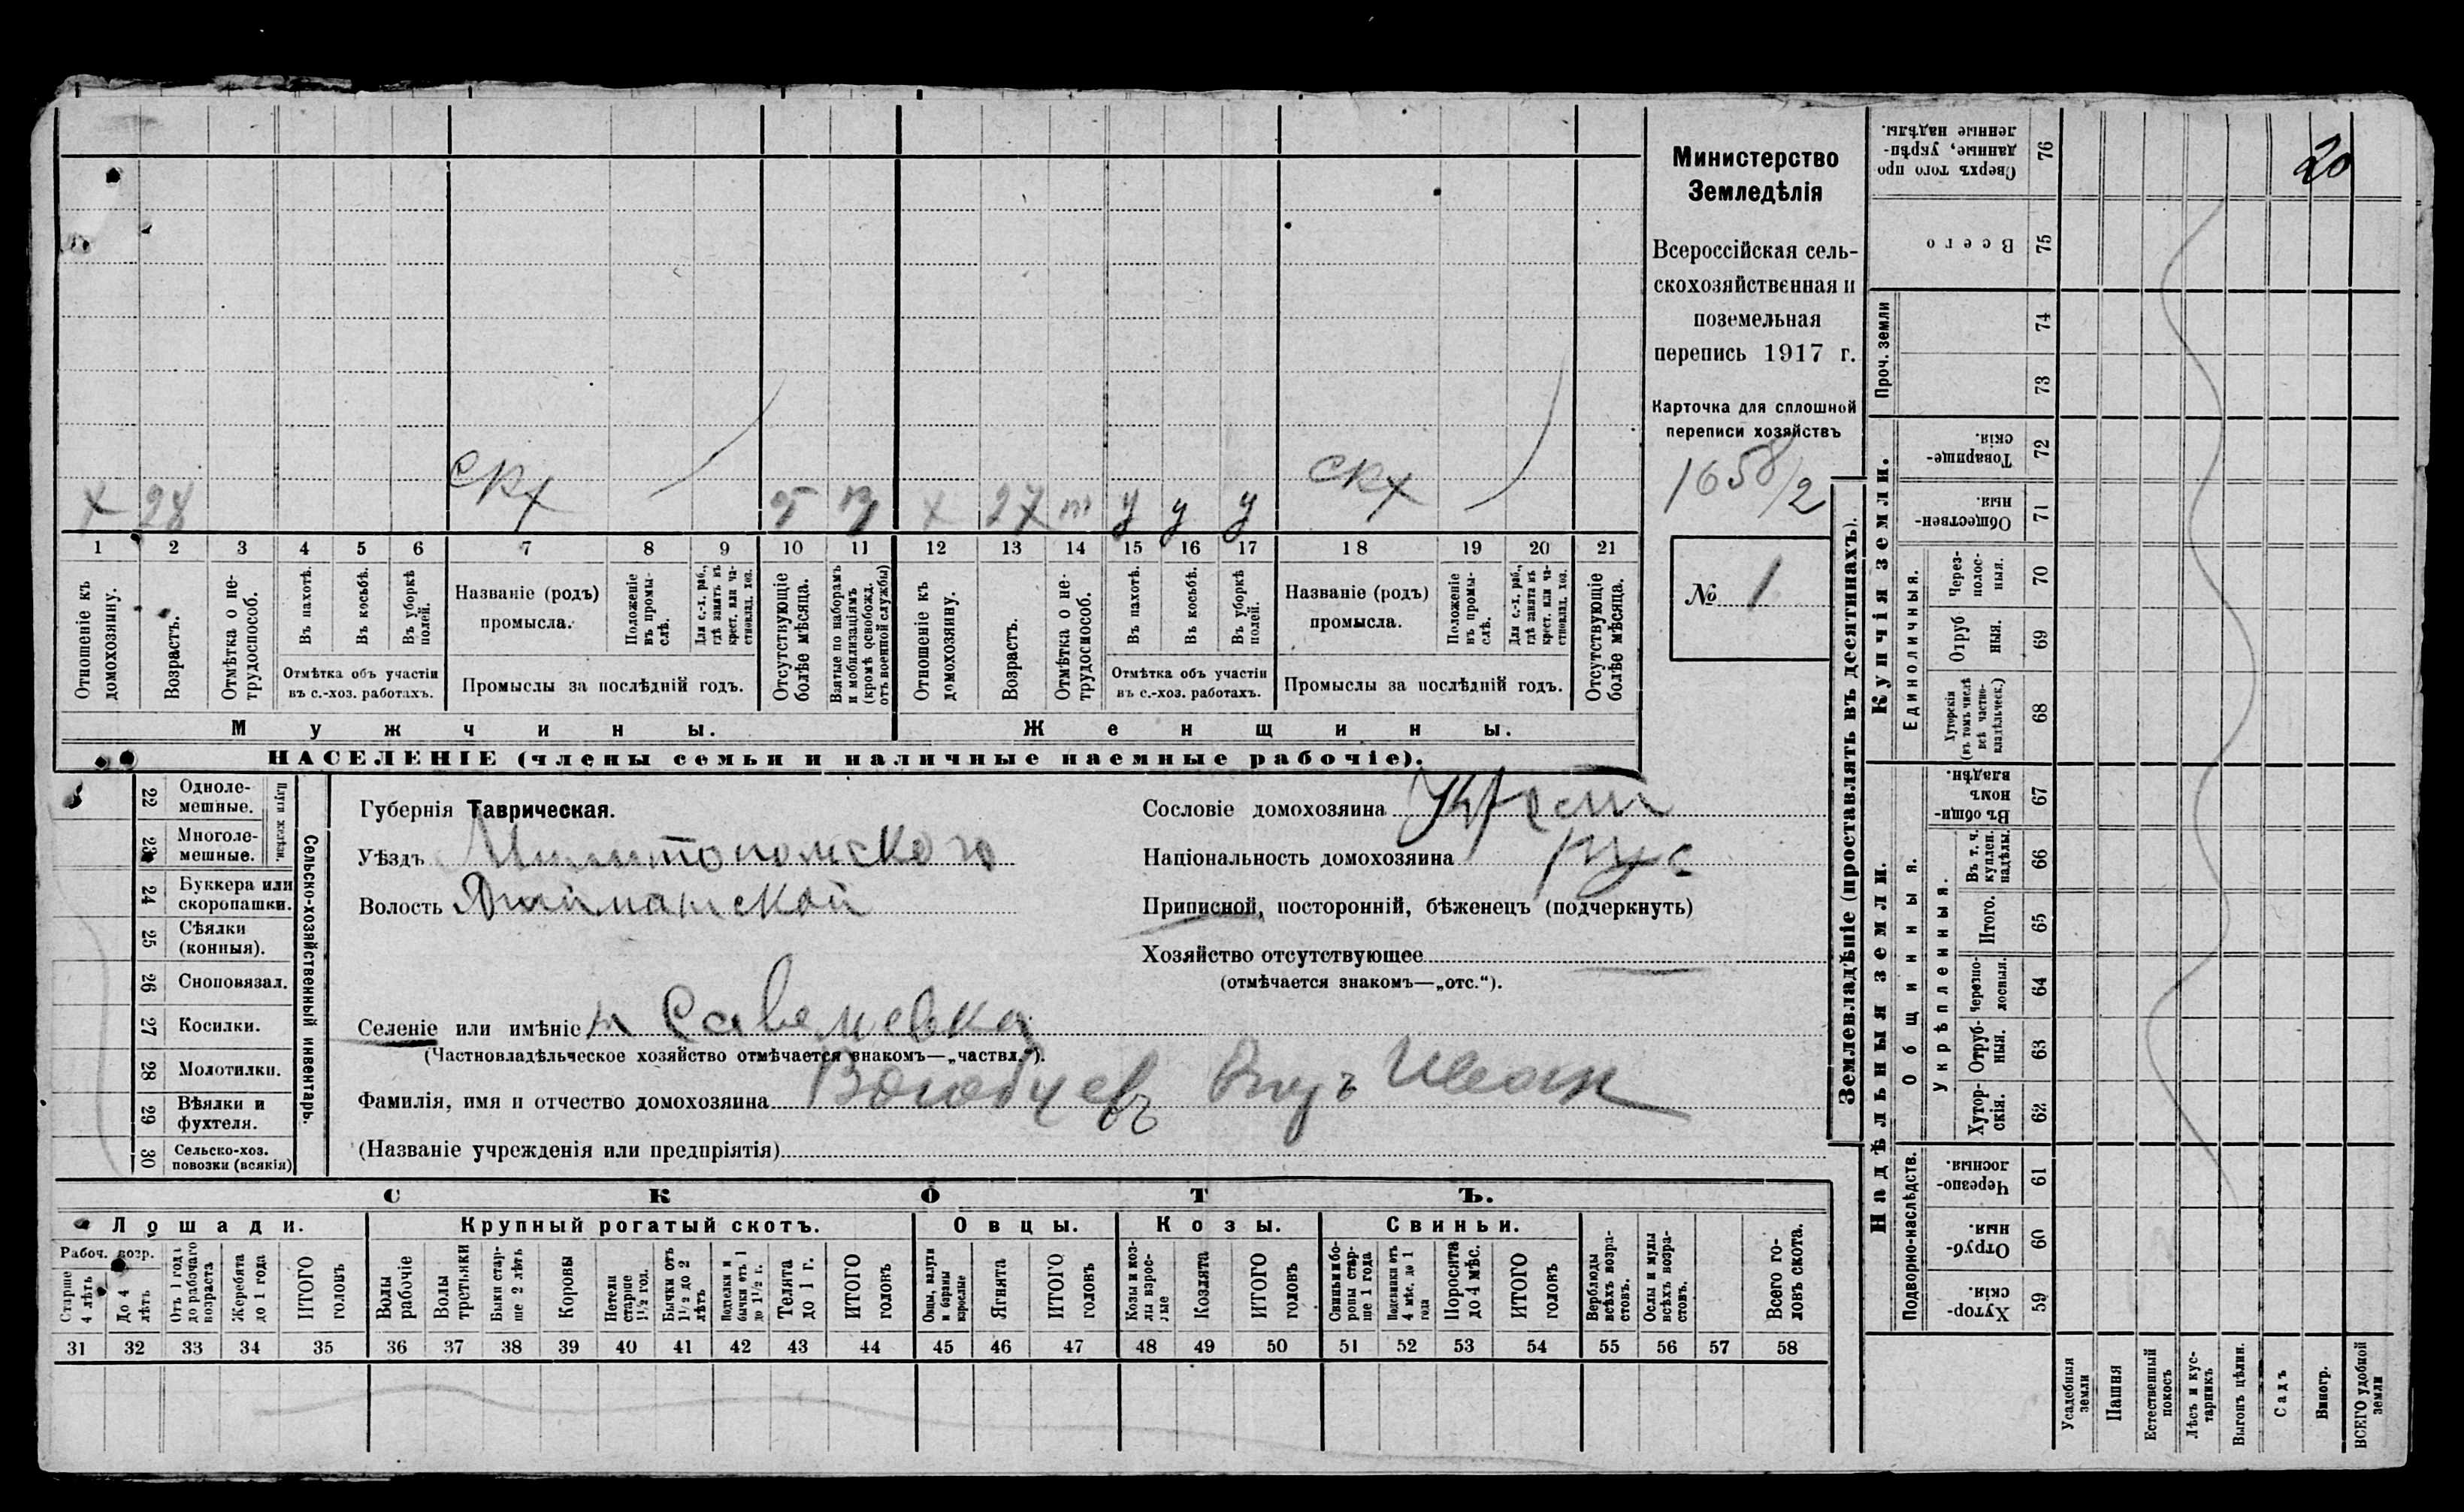 20
Министерство
Земледѣлія
Всероссійская сель-
скохозяйственная и
поземельная
перепись 1917 г.
Карточка для сплошной
переписи хозяйствъ
1658/2
№ 1
х 28 скх х 27 у у у скх
1 2 3 4 5 6 7 8 9 10 11 12 13 14 15 16 17 18 19 20 21
Отношеніе къ домохозяину.
Возрастъ.
Отмѣтка о не-трудоспособ.
Въ пахотѣ.
Въ косьбѣ.
Въ уборкѣ полей.
Отмѣтка объ участіи
въ с.-хоз. работахъ.
Названіе (родъ)
промысла.
Положеніе въ промы-слѣ.
Для с.-х. раб., гдѣ занятъ въ крест. или ча-стновлад. хоз.
Промыслы за послѣдній годъ.
Отсутствующіе болѣе мѣсяца.
Взятые по наборамъ и мобилизаціямъ (кромѣ освобожд. отъ военной службы)
Отношеніе къ домохозяину.
Возрастъ.
Отмѣтка о не-трудоспособ.
Въ пахотѣ.
Въ косьбѣ.
Въ уборкѣ полей.
Отмѣтка объ участіи
въ с.-хоз. работахъ.
Названіе (родъ)
промысла.
Положеніе въ промы-слѣ.
Для с.-х. раб., гдѣ занята въ крест. или ча-стновлад. хоз.
Промыслы за послѣдній годъ.
Отсутствующіе болѣе мѣсяца.
Мужчины. Женщины.
НАСЕЛЕНІЕ (члены семьи и наличные наемные рабочіе).
Сельско-хозяйственный инвентарь.
Плуги желѣзн.
22 Одноле-мешные.
23 Многоле-мешные.
24 Буккера или скоропашки.
25 Сѣялки (конныя).
26 Сноповязал.
27 Косилки.
28 Молотилки.
29 Вѣялки и фухтеля.
30 Сельско-хоз. повозки (всякія)
Губернія Таврическая.
Уѣздъ
Волость
Селеніе или имѣніе
(Частновладѣльческое хозяйство отмѣчается знакомъ—„частвл.“).
Фамилія, имя и отчество домохозяина Иван
(Названіе учрежденія или предпріятія)
Сословіе домохозяина
Національность домохозяина рус
Приписной, посторонній, бѣженецъ (подчеркнуть)
Хозяйство отсутствующее
(отмѣчается знакомъ—„отс.“).
СКОТЪ.
Лошади. Крупный рогатый скотъ. Овцы. Козы. Свиньи.
Рабоч. возр.
Старше 4 лѣтъ
До 4 лѣтъ
Отъ 1 года до рабочаго возраста
Жеребята до 1 года
ИТОГО головъ
Волы рабочіе
Волы третьяки
Быки стар-ше 2 лѣтъ
Коровы
Нетели старше 1½ год.
Бычки отъ 1½ до 2 лѣтъ
Подтелки и бычки отъ 1 до 1½ г.
Телята до 1 г.
ИТОГО головъ
Овцы, валухи и бараны взрослые
Ягнята
ИТОГО головъ
Козы и коз-лы взрос-лые
Козлята
ИТОГО головъ
Свиньи и бо-ровы стар-ше 1 года
Подсвинки отъ 4 мѣс. до 1 года
Поросята до 4 мѣс.
ИТОГО головъ
Верблюды всѣхъ возра-стовъ.
Ослы и мулы всѣхъ возра-стовъ.
Всего го-ловъ скота.
31 32 33 34 35 36 37 38 39 40 41 42 43 44 45 46 47 48 49 50 51 52 53 54 55 56 57 58
Землевладѣніе (проставлять въ десятинахъ).
Надѣльныя земли. Купчія земли. Проч. земли
Подворно-наслѣдств.
Общинныя.
Укрѣпленныя.
Единоличныя.
59 Хутор-скія.
60 Отруб-ныя.
61 Черезпо-лосныя.
62 Хутор-скія.
63 Отруб-ныя.
64 Черезпо-лосныя.
65 Итого.
66 Въ т. ч. куплен. надѣлы.
67 Въ общи-номъ владѣн.
68 Хуторскія (въ томъ числѣ всѣ частно-владѣльческ.)
69 Отруб ныя.
70 Через-полос-ныя.
71 Обществен-ныя.
72 Товарище-скія.
73
74
75 Всего
76 Сверхъ того про данные, укрѣп-ленные надѣлы.
Усадебныя земли
Пашня
Естественный покосъ
Лѣсъ и кус-тарникъ
Выгонъ цѣлин.
Садъ
Виногр.
ВСЕГО удобной земли